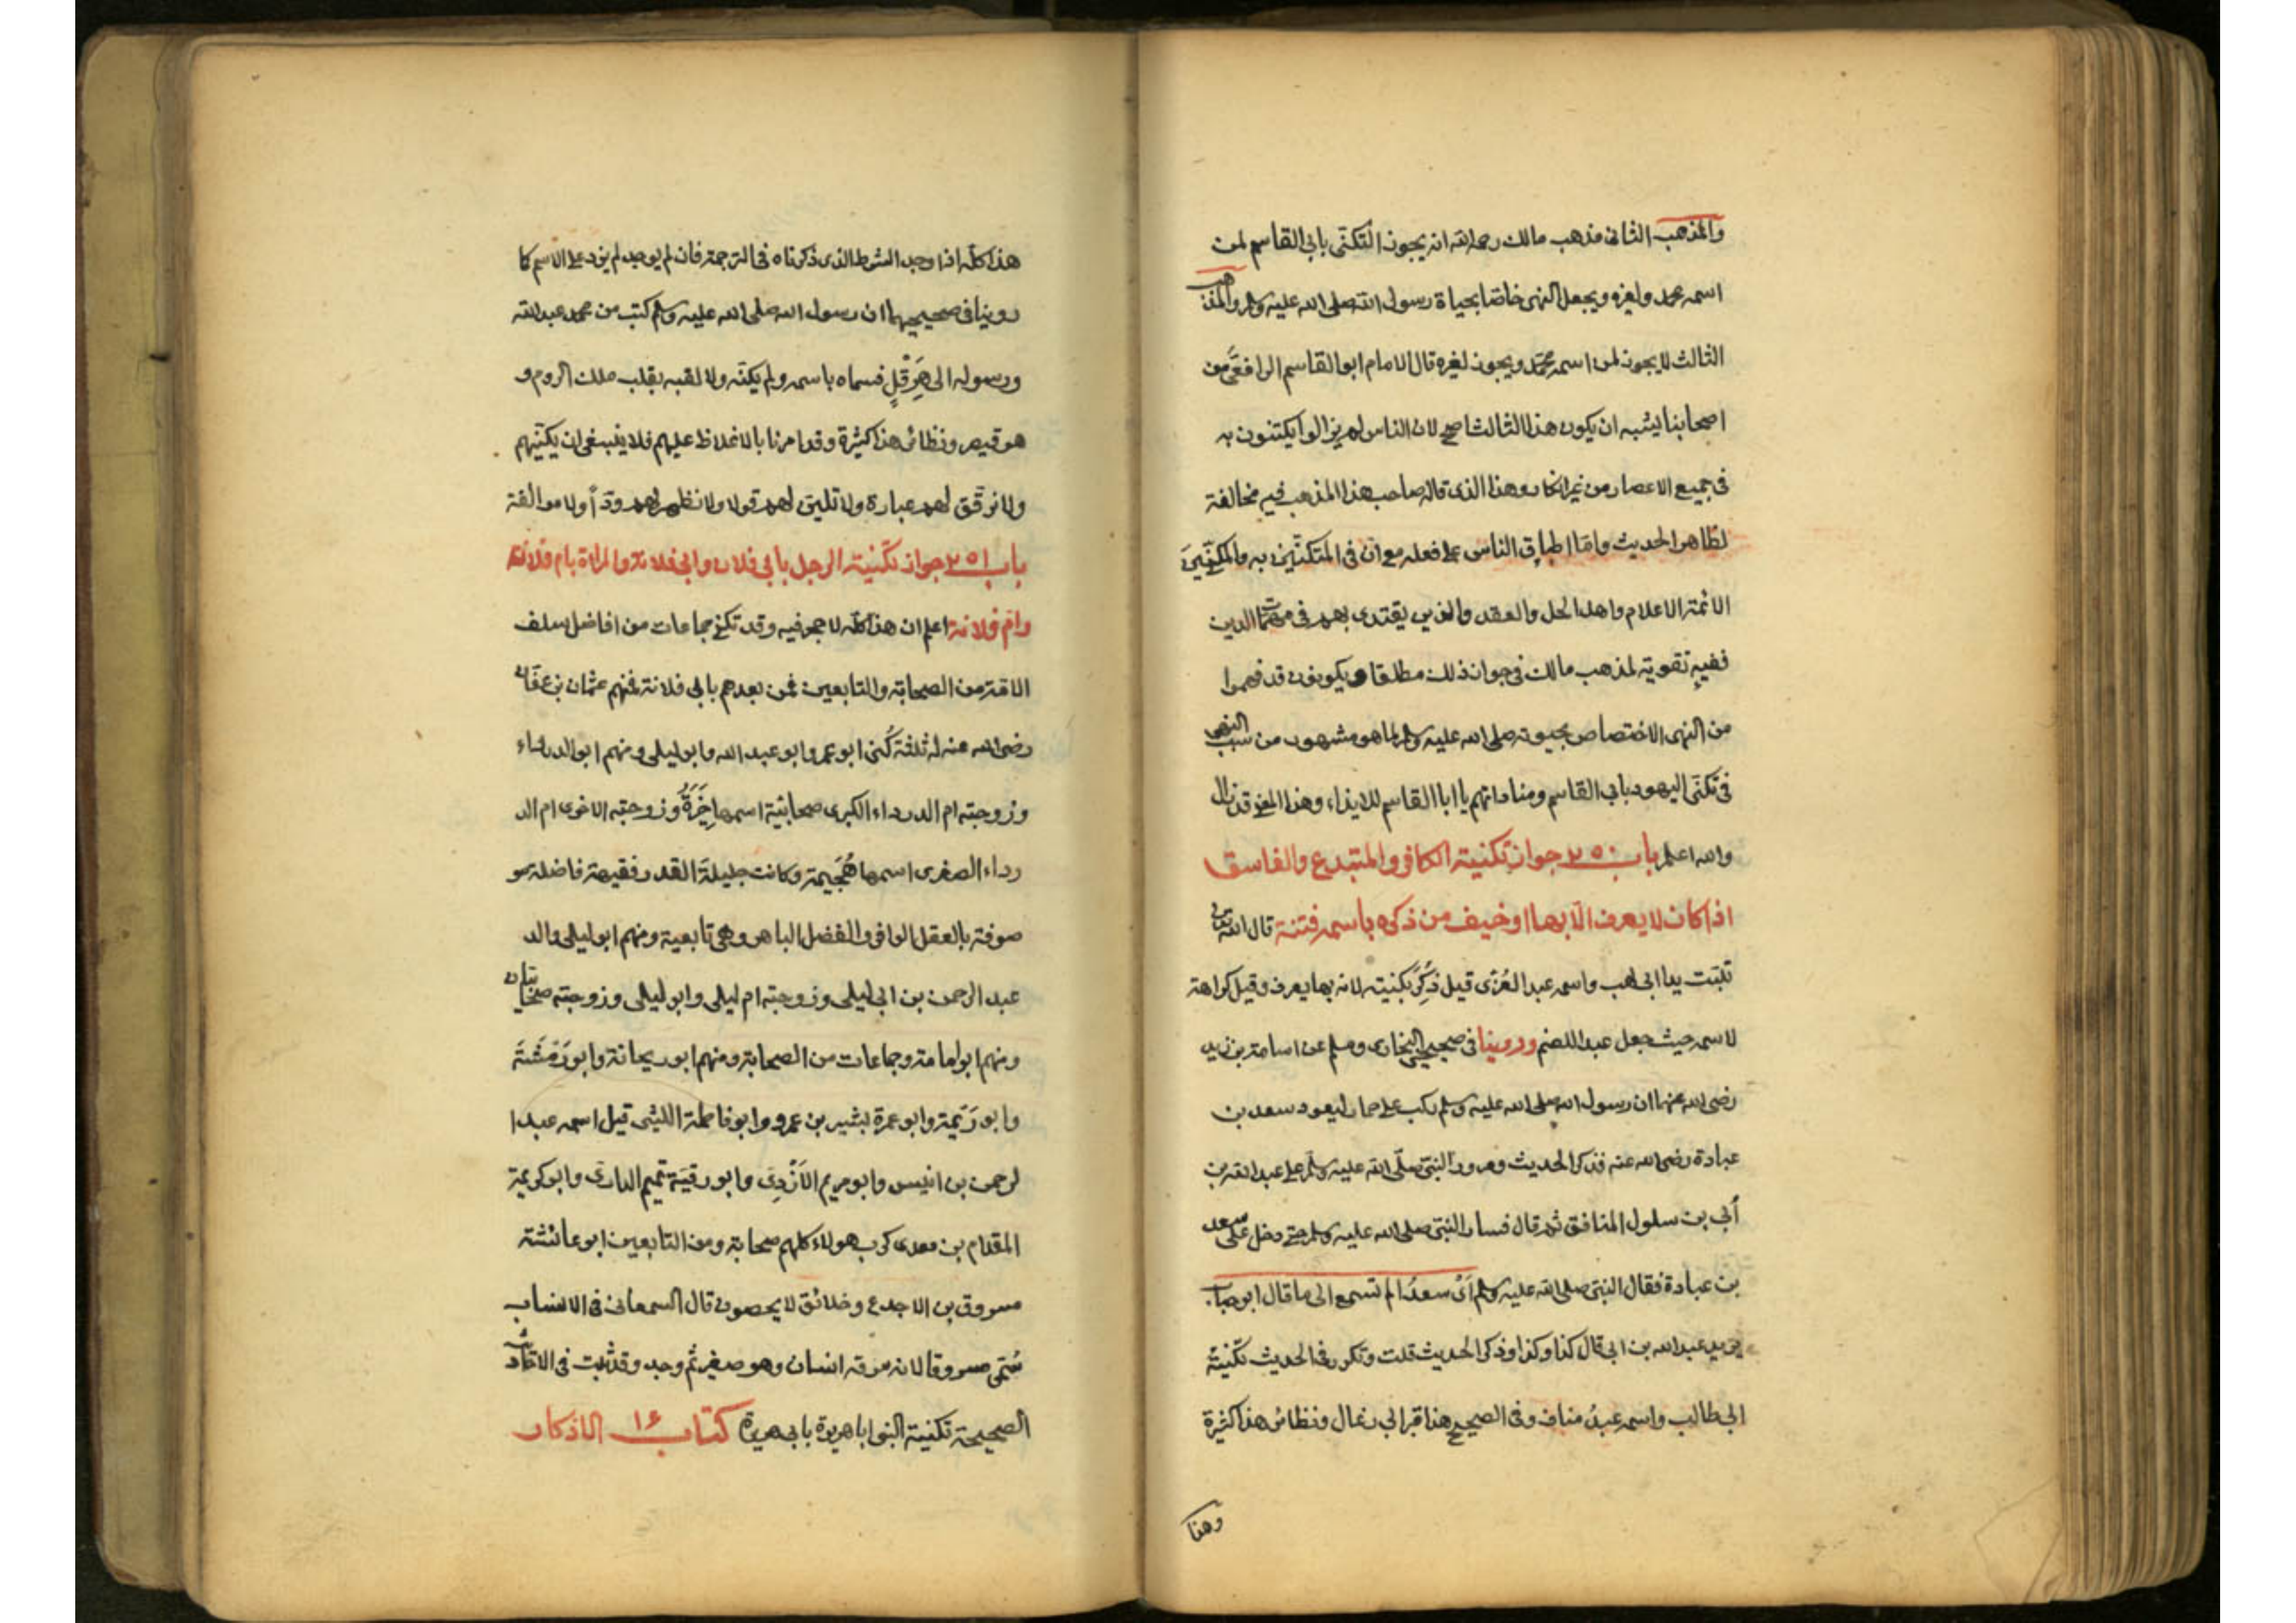 والمذهب الثانى مذهب مالك رحمه الله انه يجوز التكنّى بابى القاسم لمن
اسمه محمد ولغيره ويجعل النهى خاصّا بحياة رسول الله صلى الله عليه وسلم والمذهب
الثالث لا يجوز لمن اسمه محمّد ويجوز لغيره قال الامام ابو القاسم الرافعىّ من
اصحابنا يشبه ان يكون هذا الثالث اصح لان الناس لم يزالوا يكتنون به
فى جميع الاعصار من غير انكار وهذا الذى قاله صاحب هذا المذهب فيه مخالفة
لظاهر الحديث وامّا اطباق الناس على فعله مع انّ فى المتكنّين به والمكنّين
الائمة الاعلام واهل الحل والعقد والذين يقتدى بهم فى مهمّات الدين
ففيه تقوية لمذهب مالك فى جواز ذلك مطلقا ويكونون قد فهموا
من النهى الاختصاص بحيوته صلى الله عليه وسلم لما هو مشهور من سبب النهى
فى تكنّى اليهود بابى القاسم ومناداتهم يا ابا القاسم للايذاء وهذا المعنى قد زال
والله اعلم باب ٢٥٠ جواز تكنية الكافر والمبتدع والفاسق
اذا كان لا يعرف الّا بها او خيف من ذكره باسمه فتنة قال الله تعالى
تبّت يدا ابى لهب واسمه عبد العُزّى قيل ذُكِرَ بكنيته لانه بها يعرف وقيل كراهة
لاسمه حيث جعل عبدا للصنم وروينا فى صحيحى البخارى ومسلم عن اسامة بن زيد
رضى الله عنهما ان رسول الله صلى الله عليه وسلم ركب على حمار ليعود سعد بن
عبادة رضى الله عنه فذكر الحديث ومرور النبىّ صلّى الله عليه وسلّم على عبد الله بن
أبى بن سلول المنافق ثم قال فسار النبىّ صلى الله عليه وسلم حتى دخل على سعد
بن عبادة فقال النبىّ صلى الله عليه وسلم أىْ سعدُ الم تسمع الى ما قال ابو حباب
يريد عبد الله بن ابى قال كذا وكذا وذكر الحديث قلت وتكرر فى الحديث تكنية
ابى طالب واسمه عبدُ مناف وفى الصحيح هذا قبر ابى رغال ونظائر هذا كثيرة
وهذا
هذا كلّه اذا وجد الشرط الذى ذكرناه فى الترجمة فان لم يوجد لم يزد على الاسم كما
روينا فى صحيحيهما ان رسول الله صلى الله عليه وسلم كتب من محمد عبد الله
ورسوله الى هِرَقْلٍ فسماه باسمه ولم يكنّه ولا لقبه بقلب ملك الروم و
هو قيصر ونظائر هذا كثيرة وقد امرنا بالاغلاظ عليهم فلا ينبغى ان يكنّيهم
ولا نرقّق لهم عبارة ولا تلين لهم قولا ولا نظهر لهم ودّاً ولا موالفة
باب ٢٥١ جواز تكنية الرجل بابى فلان وابى فلانة والمراة بام فلان
وامّ فلانة اعلم ان هذا كلّه لا حجر فيه وقد تكنى جماعات من افاضل سلف
الامّة من الصحابة والتابعين فمن بعدهم بابى فلانة فمنهم عثمان بن عفّان
رضى الله عنه له ثلثة كُنى ابو عمرو ابو عبد الله وابو ليلى ومنهم ابو الدرداء
وزوجته ام الدرداء الكبرى صحابيّة اسمها خَيَرَةُ وزوجته الاخرى ام الد
رداء الصغرى اسمها هُجَيمة وكانت جليلة القدر فقيهة فاضلة مو
صوفة بالعقل الوافر والفضل الباهر وهى تابعية ومنهم ابو ليلى والد
عبد الرحمن بن ابى ليلى وزوجته ام ليلى وابو ليلى وزوجته صحابيّان
ومنهم ابو امامة وجماعات من الصحابة ومنهم ابو ريحانة وابو رَمْشَةَ
وابو رَيمة وابو عمرة بشير بن عمرو وابو فاطمة الليثى قيل اسمه عبد ا
لرحمن بن انيس وابو مريم الأَزْدِى وابو رقيّة تميم الدارى وابو كريمة
المقدام بن معدى كرب هولاء كلهم صحابة ومن التابعين ابو عائشة
مسروق بن الاجدع وخلائق لا يحصون قال السمعانى فى الانساب
سُمّى مسروقا لانه سرقه انسان وهو صغير ثم وجد وقد ثبت فى الاحاديث
الصحيحة تكنية النبى ابا هريرة بابى هريرة كتاب ١٤ الاذكار